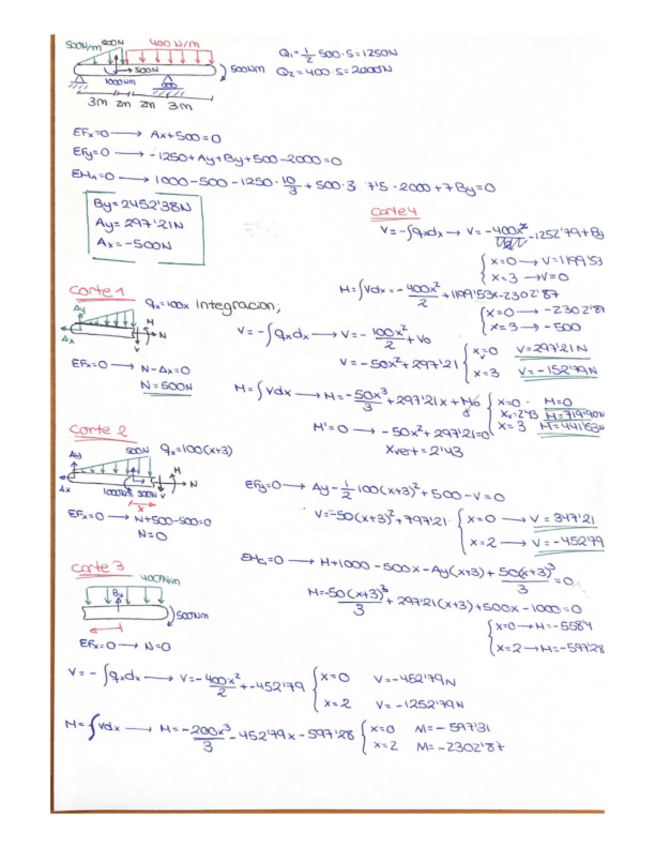 500N/m 500N 400 N/m
500N
1000Nm
500Nm
3m 2m 2m 3m
Q₁=½ 500·5=1250N
Q₂=400·5=2000N
EFx=0 → Ax+500=0
EFy=0 → -1250+Ay+By+500-2000=0
EMA=0 → 1000-500-1250·10/3+500·3 7'5·2000+7By=0
By=2452'38N
Ay=297'21N
Ax=-500N
Corte 4
V=-∫qxdx → V=-400x² -1252'79+By
x=0 → V=1199'53
x=3 → V=0
M=∫Vdx=-400x²/2+1199'53x-2302'87
x=0 → -2302'87
x=3 → -500
Corte 1
qx=100x Integracion;
Ay
Ax
M
N
V
EFx=0 → N-Ax=0
N=500N
V=-∫qxdx → V=-100x²/2+V0
V=-50x²+297'21
x=0 V=297'21N
x=3 V=-152'79N
M=∫Vdx → M=-50x³/3+297'21x+M0
x=0 M=0
x=2'43 M=719'90N
x=3 M=441'63N
M'=0 → -50x²+297'21=0
Xvert=2'43
Corte 2
500N qx=100(x+3)
Ay
Ax
M
N
V
1000Nm 500N
x
EFx=0 → N+500-500=0
N=0
EFy=0 → Ay-½100(x+3)²+500-V=0
V=-50(x+3)²+797'21
x=0 → V=347'21
x=2 → V=-452'79
EMc=0 → M+1000-500x-Ay(x+3)+50(x+3)³/3=0
M=-50(x+3)³/3+297'21(x+3)+500x-1000=0
x=0→M=-558'4
x=2→M=-597'28
Corte 3
400N/m
By
500Nm
EFx=0 → N=0
V=-∫qxdx → V=-400x²/2+-452'79
x=0 V=-452'79N
x=2 V=-1252'79N
M=∫Vdx → M=-200x³/3-452'79x-597'28
x=0 M=-597'31
x=2 M=-2302'87